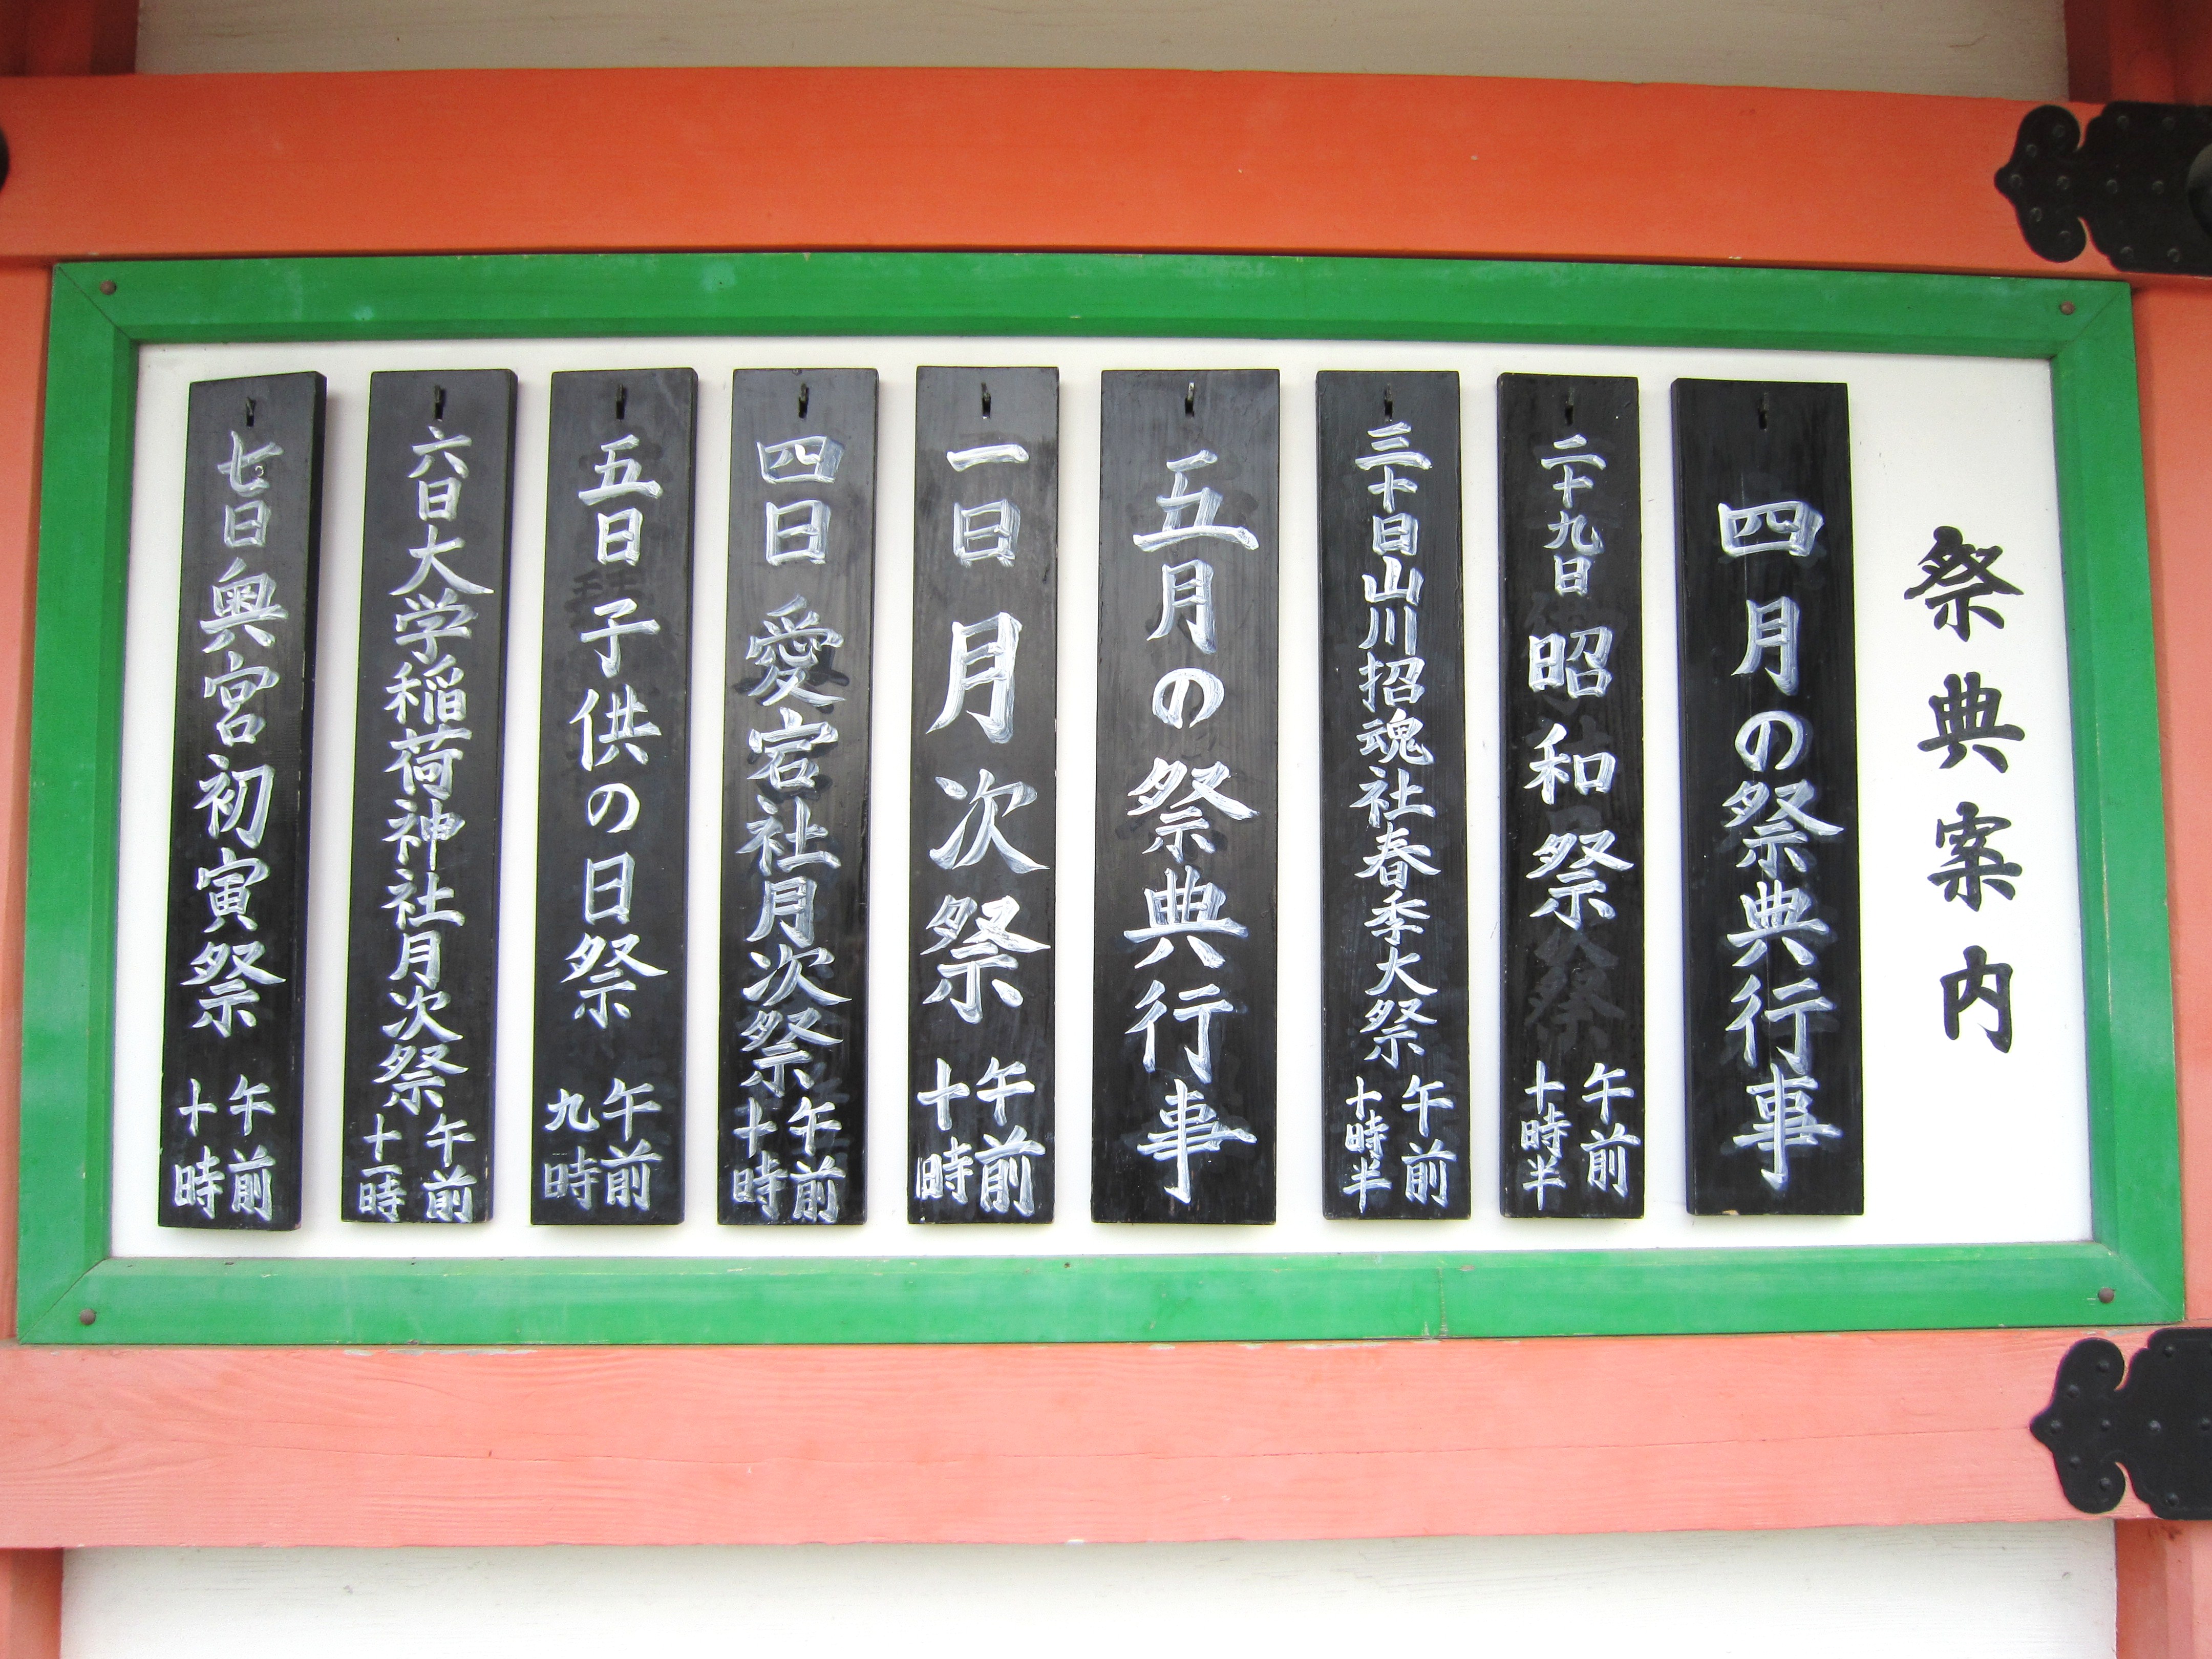 祭典案内
四月の祭典行事
二十九日 昭和祭 午前十時半
三十日山川招魂社春季大祭 午前十時半
五月の祭典行事
一日 月次祭 午前十時
四日 愛宕社月次祭 午前十時
五日 子供の日祭 午前九時
六日大学稲荷神社月次祭 午前十一時
七日 奥宮初寅祭 午前十時